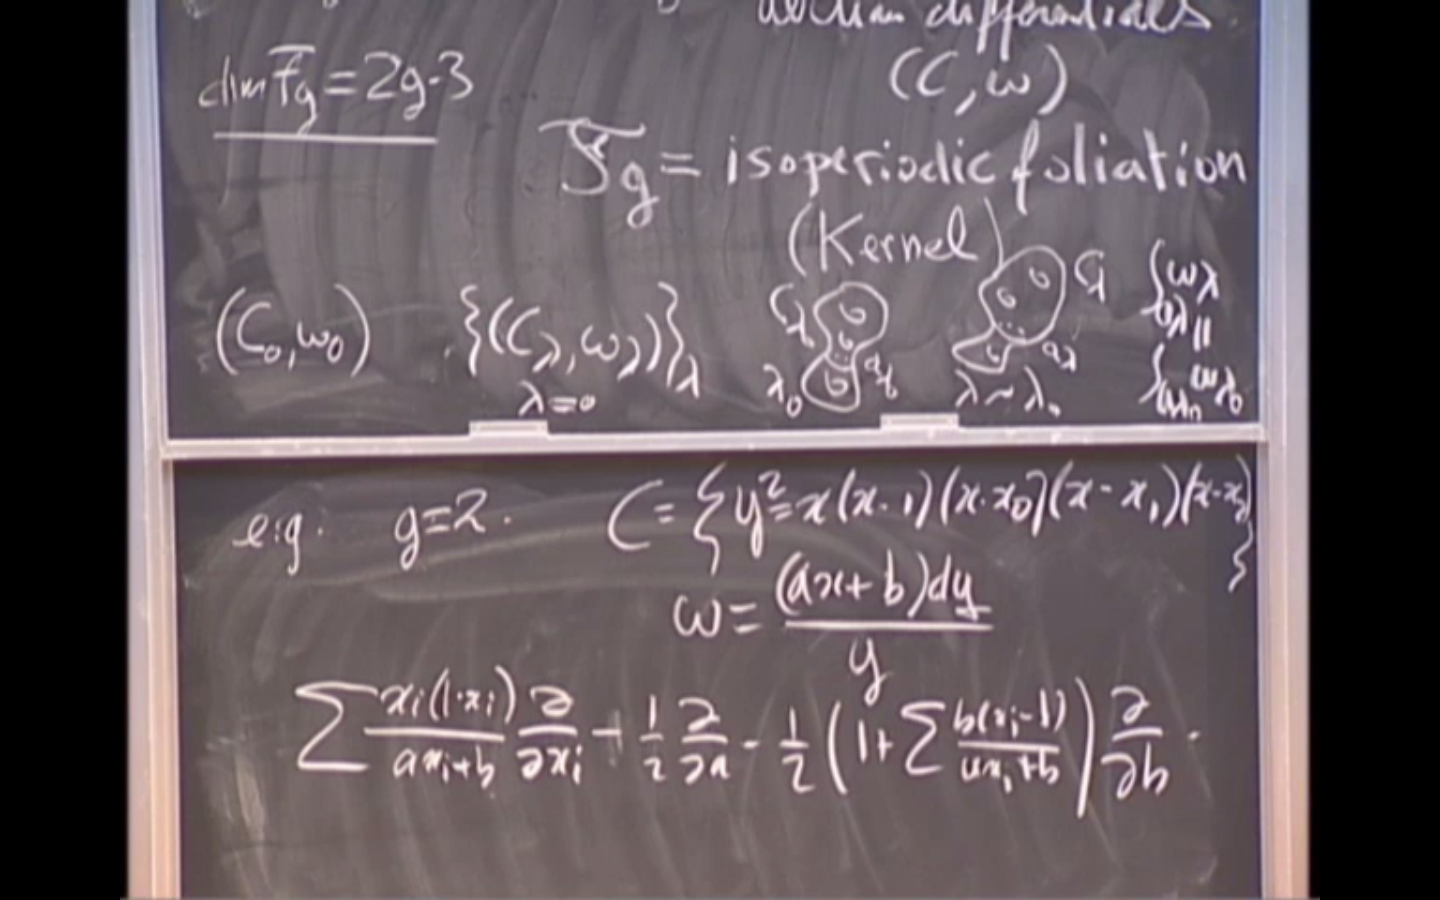 abelian differentials.
dim F_g = 2g-3
(C, ω)
F_g = isoperiodic foliation
(Kernel)
(C₀, ω₀) {(C_λ, ω_λ)}_λ
λ=0
C_λ
λ₀
C_λ a_λ
λ ~ λ₀
∫ω_λ
a_λ ||
∫ω_λ₀
e.g. g=2. C = { y² = x(x-1)(x-x₀)(x-x₁)(x-x₂) }
ω = (ax+b)dy / y
∑ xᵢ(1-xᵢ)/(axᵢ+b) ∂/∂xᵢ + 1/2 ∂/∂a - 1/2 (1+ ∑ b(xᵢ-1)/(axᵢ+b)) ∂/∂b .